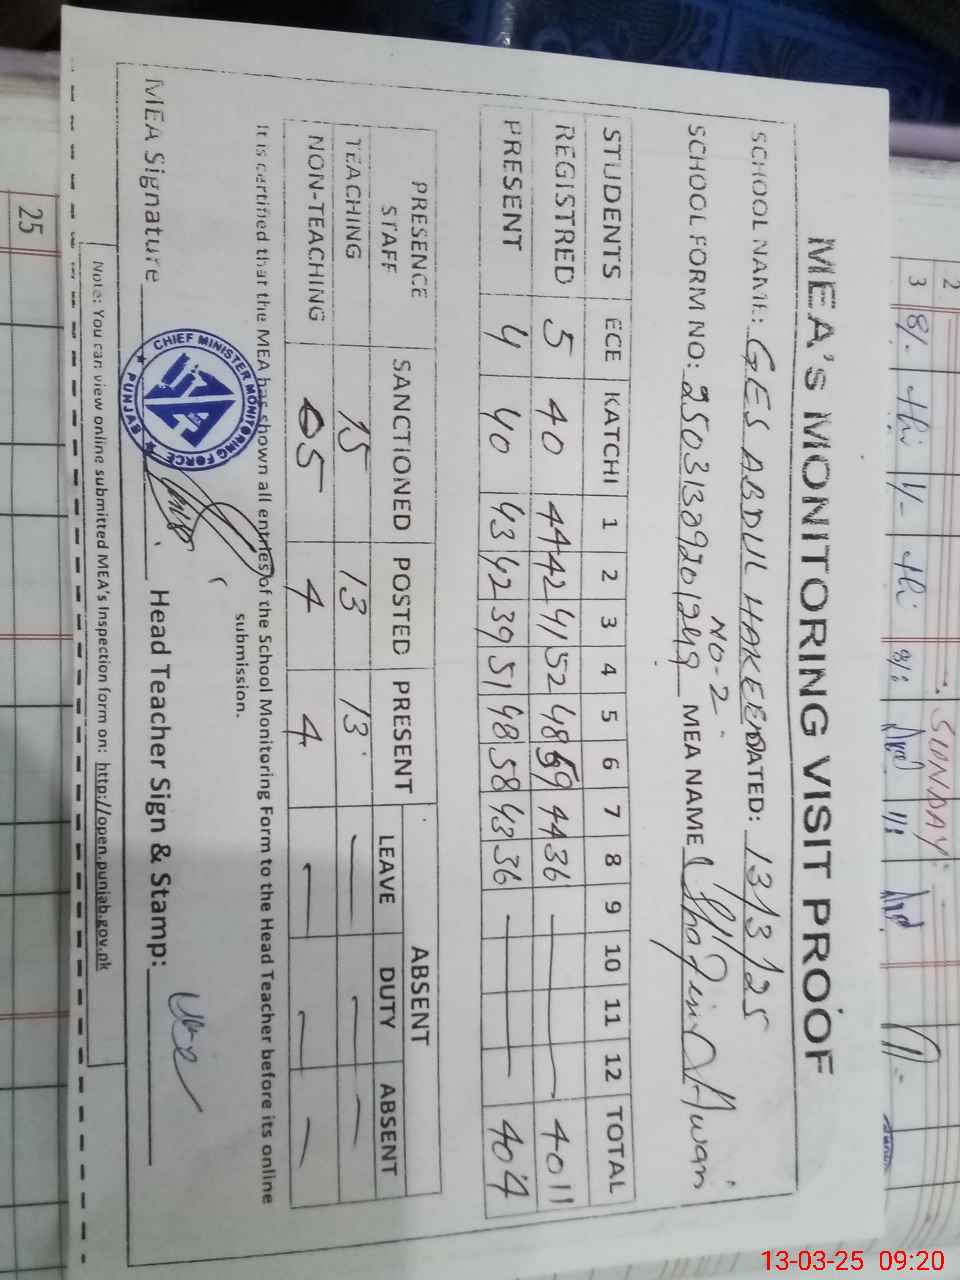 MEA's MONITORING VISIT PROOF
SCHOOL NAME: GES ABDUL HAKEEM DATED: 13/3/25
NO-2
SCHOOL FORM NO: MEA NAME Awan
STUDENTS ECE KATCHI 1 2 3 4 5 6 7 8 9 10 11 12 TOTAL
REGISTRED 5 40 44 42 41 52 48 59 44 36 — 4011
PRESENT 4 40 43 42 39 51 48 58 43 36 — 404
PRESENCE STAFF SANCTIONED POSTED PRESENT ABSENT
LEAVE DUTY ABSENT
TEACHING 15 13 13 — — —
NON-TEACHING 05 4 4 — — —
It is certified that the MEA has shown all entries of the School Monitoring Form to the Head Teacher before its online
submission.
MEA Signature Head Teacher Sign & Stamp:
CHIEF MINISTER MONITORING FORCE
PUNJAB
Note: You can view online submitted MEA's Inspection form on: http://open.punjab.gov.pk
2
3
SUNDAY
25
13-03-25 09:20